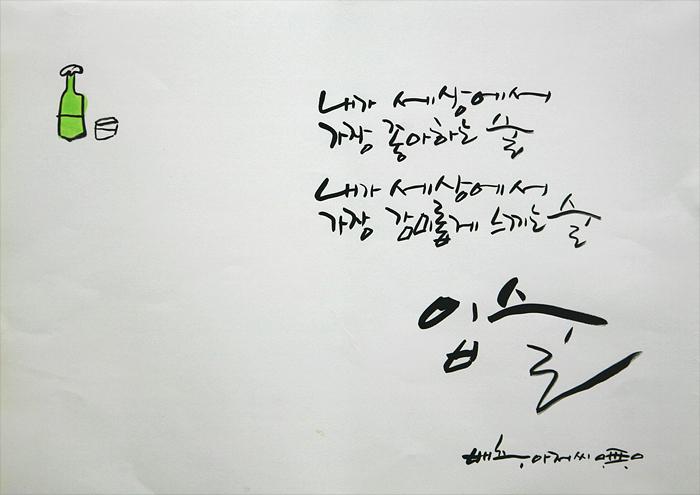 내가 세상에서
가장 좋아하는 술
내가 세상에서
가장 감미롭게 느끼는 술
입술
아재씨